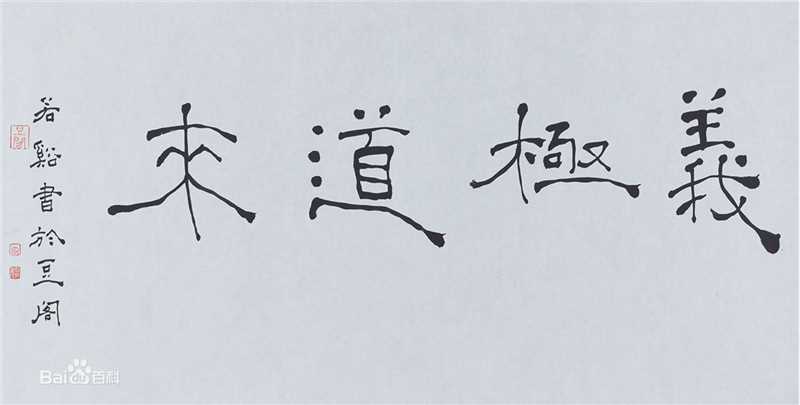 義極道来
若谿書於豆阁
Bai百科